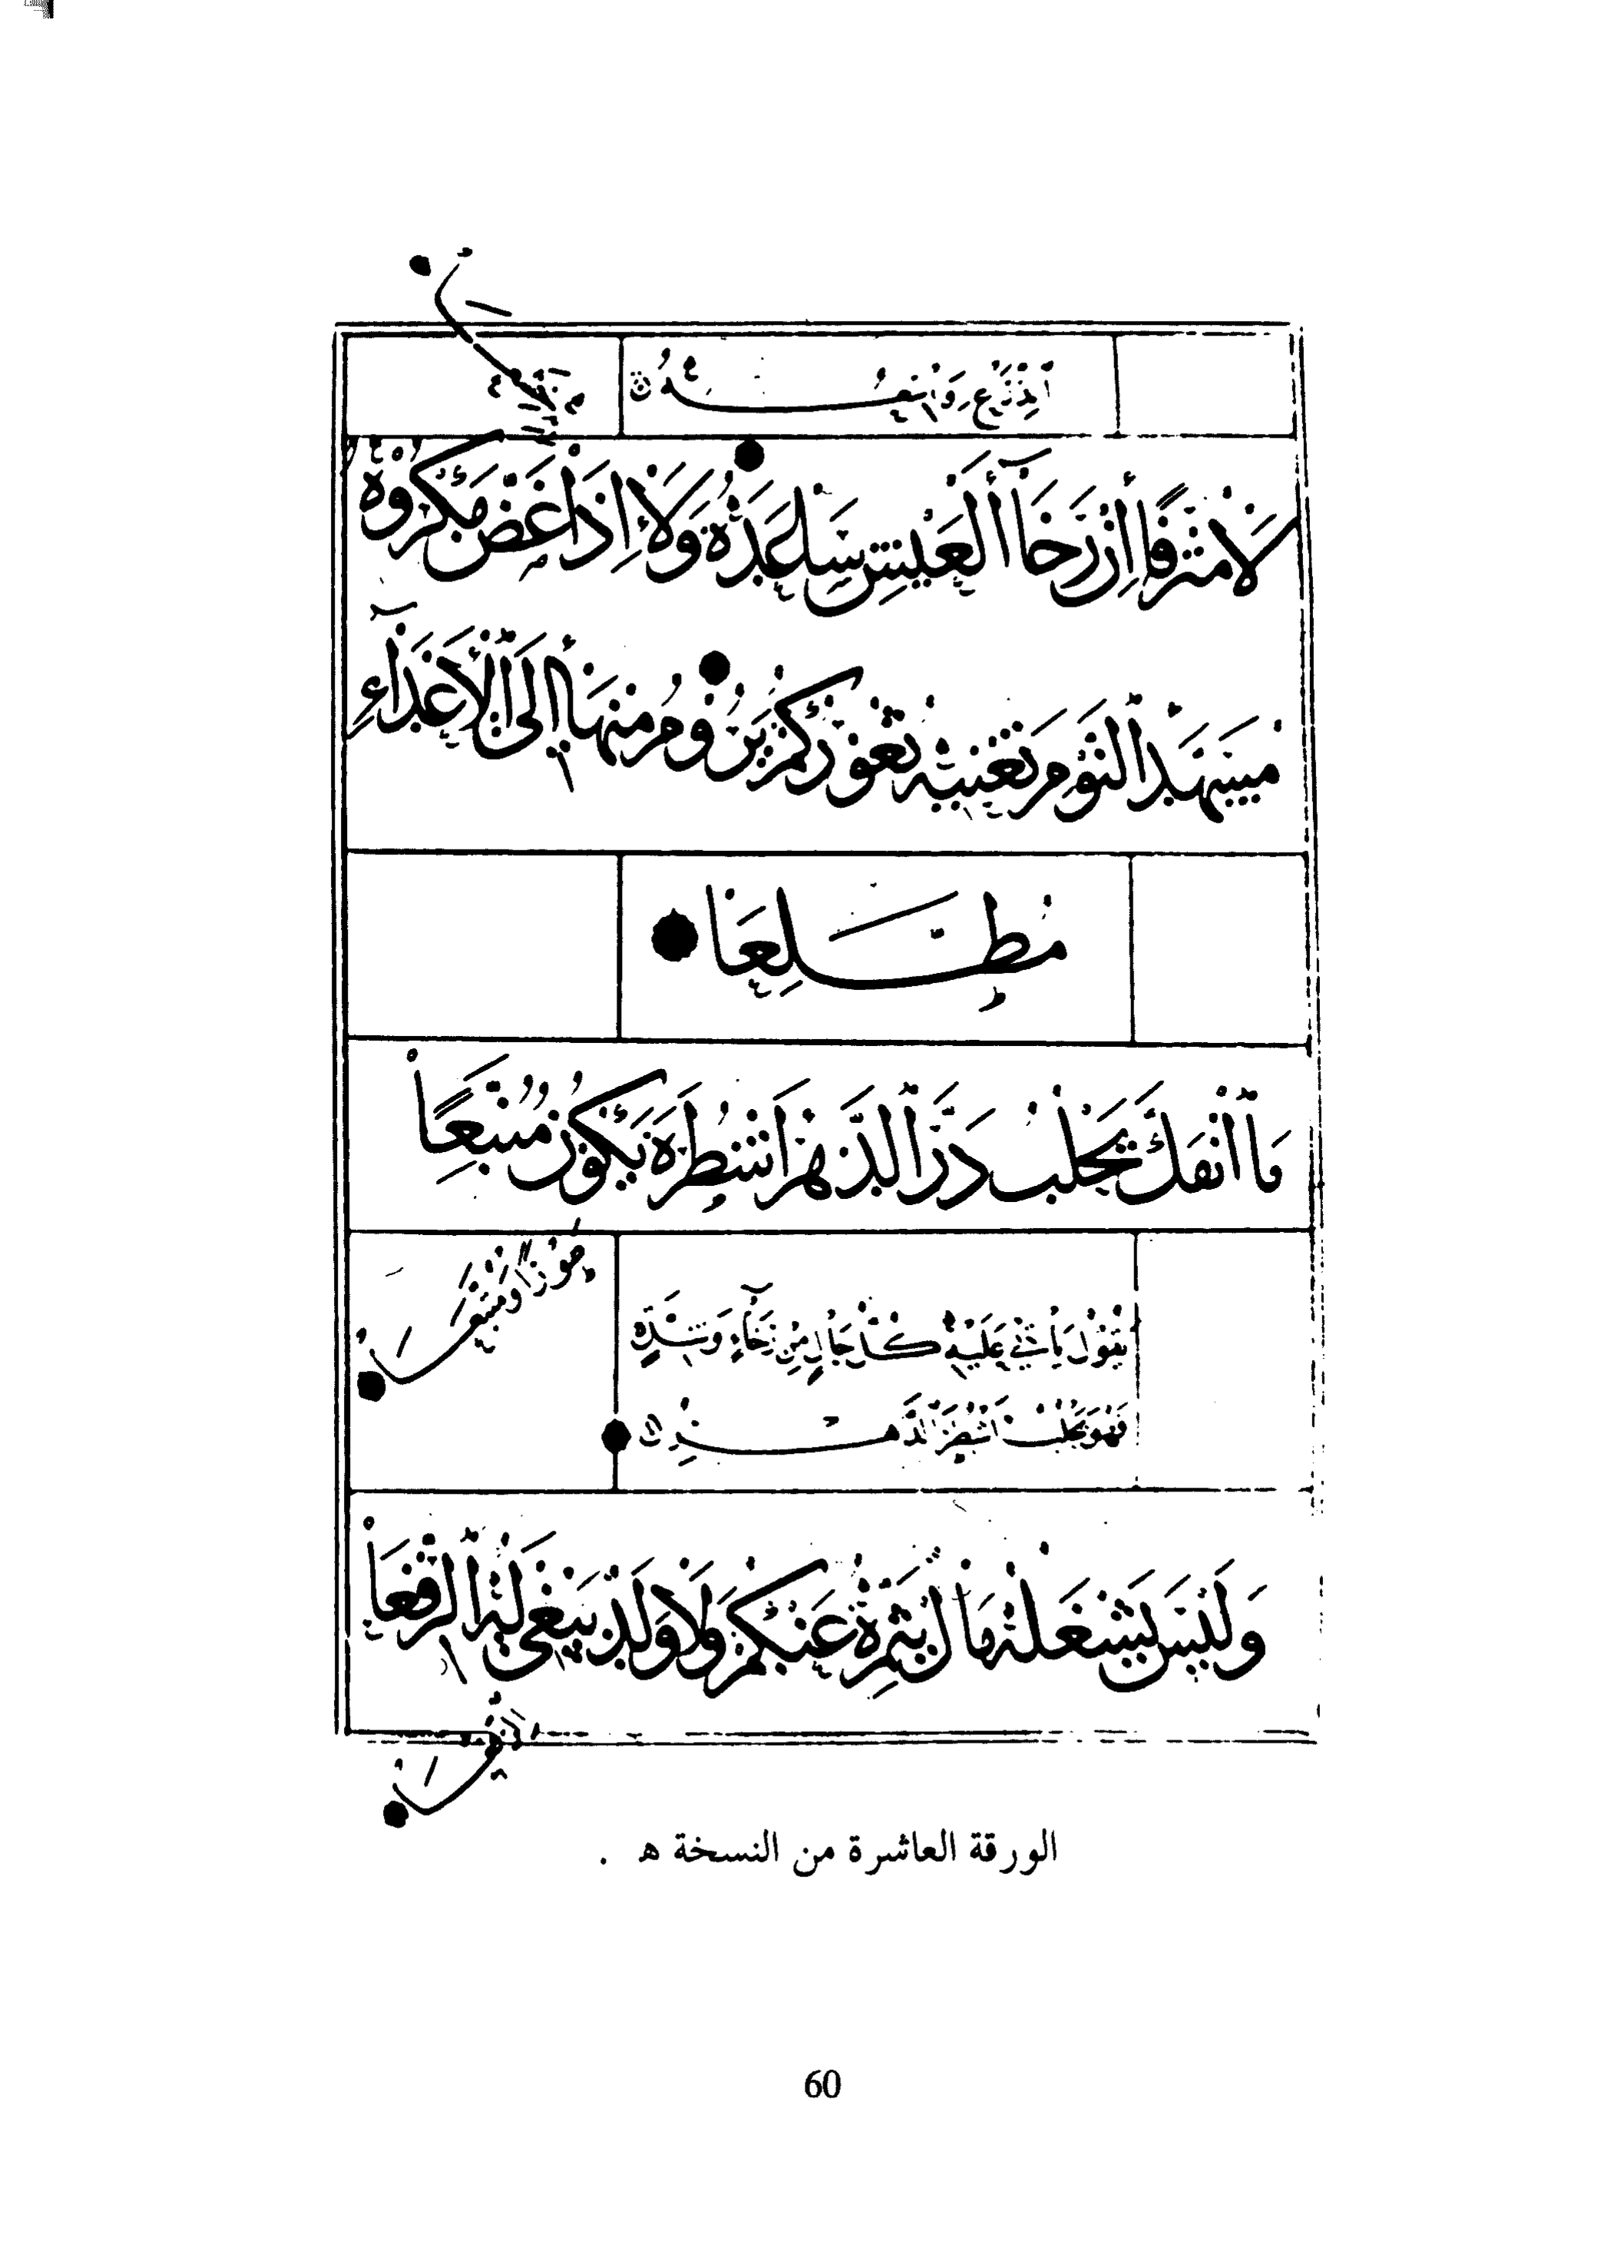 لَا مُتْرَفًا إِنْ رَخَاءُ الْعَيْشِ سَاعَدَهُ وَلَا إِذَا عَضَّ مَكْرُوهٌ
بِهِ خَشَعَا
مُسَهَّدُ النَّوْمِ تَعْنِيهِ ثُغُورُكُمْ يَرُومُ مِنْهَا إِلَى الْأَعْدَاءِ
مُطَّلِعَا
مَا انْفَكَّ يَحْلُبُ دَرَّ الدَّهْرِ أَشْطُرَهُ يَكُونُ مُتَّبِعًا
طَوْرًا وَمُتَّبَعَا
يَقُولُ يَأْتِي عَلَيْهِ كُلُّ حَالٍ مِنْ رَخَاءٍ وَشِدَّةٍ
فَهُوَ يَحْلُبُ أَشْطُرَ الدَّهْرِ
وَلَيْسَ يَشْغَلُهُ مَالٌ يُثَمِّرُهُ عَنْكُمْ وَلَا وَلَدٌ يَبْغِي لَهُ الرِّفَعَا
الورقة العاشرة من النسخة هـ .
60